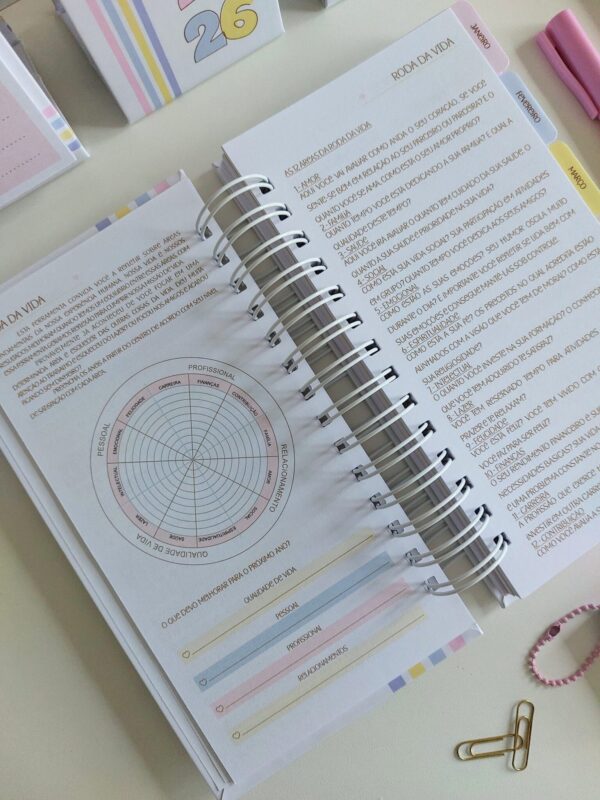 26
JANEIRO
FEVEREIRO
MARÇO
RODA DA VIDA
ESTA FERRAMENTA CONVIDA VOCÊ A REFLETIR SOBRE ÁREAS
SATISFAÇÃO COM CADA ÁREA.
PROFISSIONAL
RELACIONAMENTO
QUALIDADE DE VIDA
PESSOAL
CARREIRA
FINANÇAS
CONTRIBUIÇÃO
FAMÍLIA
AMOR
SOCIAL
ESPIRITUALIDADE
SAÚDE
LAZER
INTELECTUAL
EMOCIONAL
FELICIDADE
O QUE DEVO MELHORAR PARA O PRÓXIMO ANO?
QUALIDADE DE VIDA
PESSOAL
PROFISSIONAL
RELACIONAMENTOS
RODA DA VIDA
AS 12 ÁREAS DA RODA DA VIDA
1- AMOR
AQUI VOCÊ VAI AVALIAR COMO ANDA O SEU CORAÇÃO, SE VOCÊ
SENTE SE BEM EM RELAÇÃO AO SEU PARCEIRO OU PARCEIRA? E O
QUANTO VOCÊ SE AMA, COMO ESTÁ O SEU AMOR PRÓPRIO?
2- FAMÍLIA
QUANTO TEMPO VOCÊ ESTÁ DEDICANDO A SUA FAMÍLIA? E QUAL A
QUALIDADE DESTE TEMPO?
3- SAÚDE
AQUI VOCÊ IRÁ AVALIAR O QUANTO TEM CUIDADO DA SUA SAÚDE. O
QUANTO A SUA SAÚDE É PRIORIDADE NA SUA VIDA?
4- SOCIAL
COMO ESTÁ SUA VIDA SOCIAL? SUA PARTICIPAÇÃO EM ATIVIDADES
EM GRUPO? QUANTO TEMPO VOCÊ DEDICA AOS SEUS AMIGOS?
5- EMOCIONAL
COMO ESTÃO AS SUAS EMOÇÕES? SEU HUMOR OSCILA MUITO
DURANTE O DIA? É IMPORTANTE VOCÊ REFLETIR SE LIDA BEM COM
SUAS EMOÇÕES E CONSEGUE MANTÊ-LAS SOB CONTROLE.
6- ESPIRITUALIDADE
COMO ESTÁ A SUA FÉ? OS PRECEITOS NO QUAL ACREDITA ESTÃO
ALINHADOS COM A VISÃO QUE VOCÊ TEM DE MUNDO? COMO ESTÁ
SUA RELIGIOSIDADE?
7- INTELECTUAL
O QUANTO VOCÊ INVESTE NA SUA FORMAÇÃO? O
QUE VOCÊ TEM ADQUIRIDO TE SATISFAZ?
8- LAZER
VOCÊ TEM RESERVADO TEMPO PARA ATIVIDADES
PRAZER E TE RELAXAM?
9- FELICIDADE
VOCÊ ESTÁ FELIZ? VOCÊ TEM VIVIDO COM
VOCÊ FAZ PARA SER FELIZ?
10- FINANÇAS
O SEU RENDIMENTO FINANCEIRO É
NECESSIDADES BÁSICAS? SUA
É UMA PROBLEMA CONSTANTE
11- CARREIRA
A PROFISSÃO QUE EXERCE
INVESTIR EM OUTRA
12- CONTRIBUIÇÃO
COMO VOCÊ AVALIA A